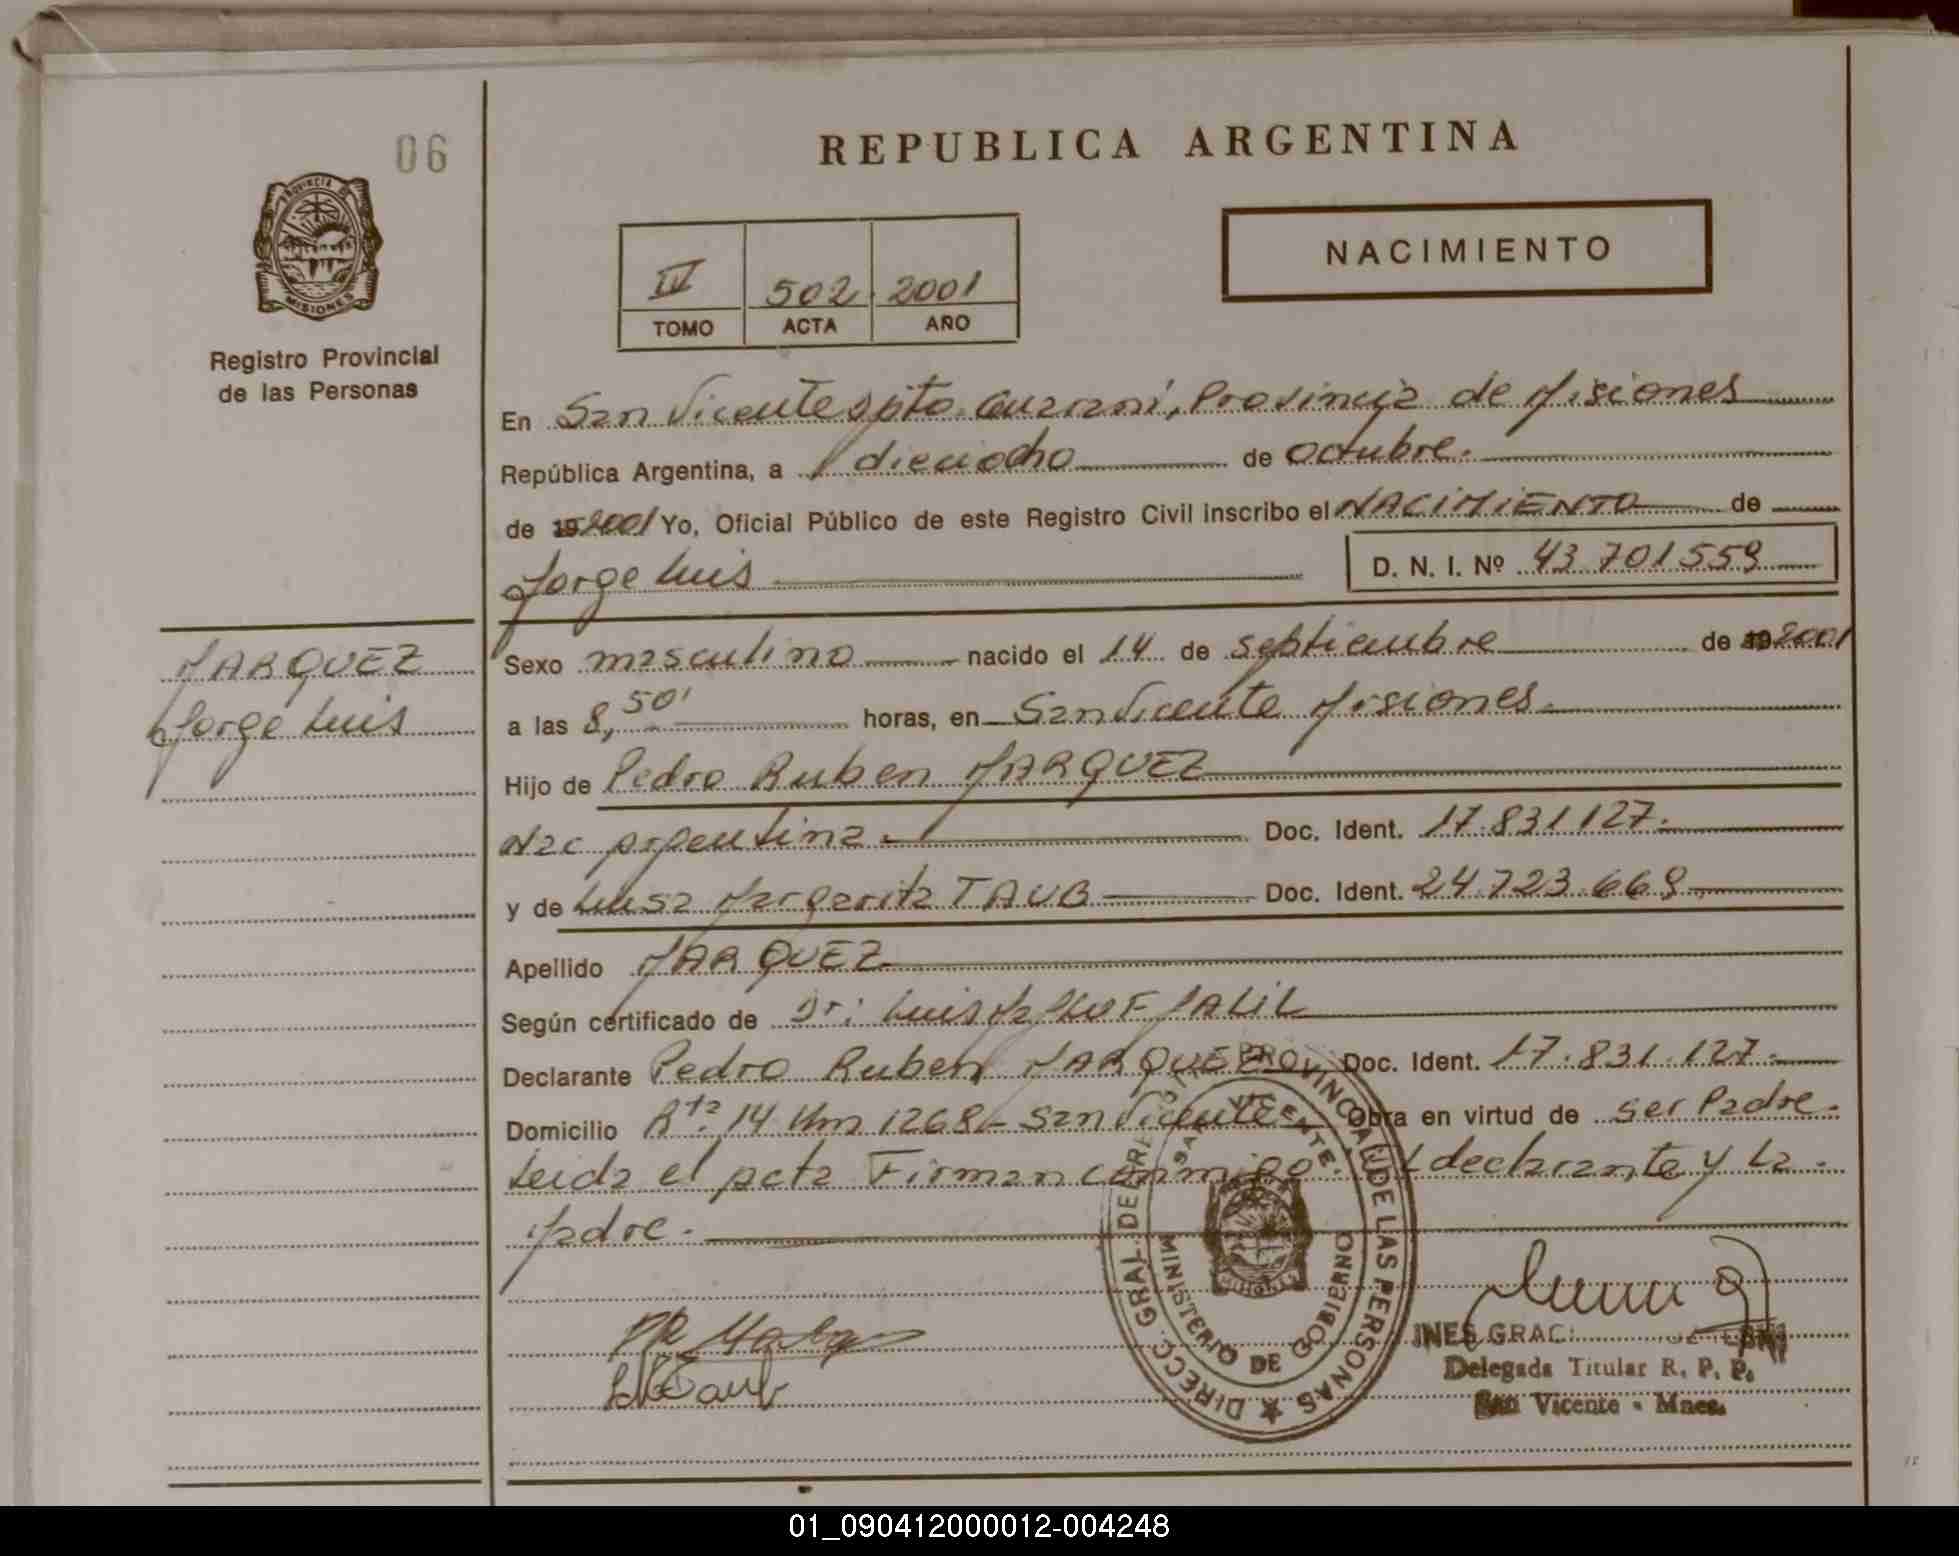 06
PROVINCIA DE
MISIONES
Registro Provincial
de las Personas
MARQUEZ
Jorge Luis
REPUBLICA ARGENTINA
IV 502 2001
TOMO ACTA AÑO
NACIMIENTO
En San Vicente dpto. Guarani, Provincia de Misiones
República Argentina, a dieciocho de octubre.
de 19 2001 Yo, Oficial Público de este Registro Civil inscribo el NACIMIENTO de
Jorge Luis D. N. I. Nº 43.701.559
Sexo masculino nacido el 14 de septiembre de 19 2001
a las 8,50' horas, en San Vicente Misiones.
Hijo de Pedro Ruben MARQUEZ
Nac argentina. Doc. Ident. 17.831.127.
y de Luisa Margarita TAUB Doc. Ident. 24.723.669
Apellido MARQUEZ
Según certificado de Dr: Luis JALIL
Declarante Pedro Ruben MARQUEZ Doc. Ident. 17.831.127.
Domicilio Rta. 14 Km 1268 - San Vicente Obra en virtud de ser Padre.
Leida el acta Firman conmigo. declarante y La.
Madre.
DIRECC. GRAL. DE PROVINCIAL DE LAS PERSONAS
SAN VICENTE
MINISTERIO DE GOBIERNO
MISIONES
Taub
INES GRAC
Delegada Titular R. P. P.
San Vicente - Mnes.
01_090412000012-004248